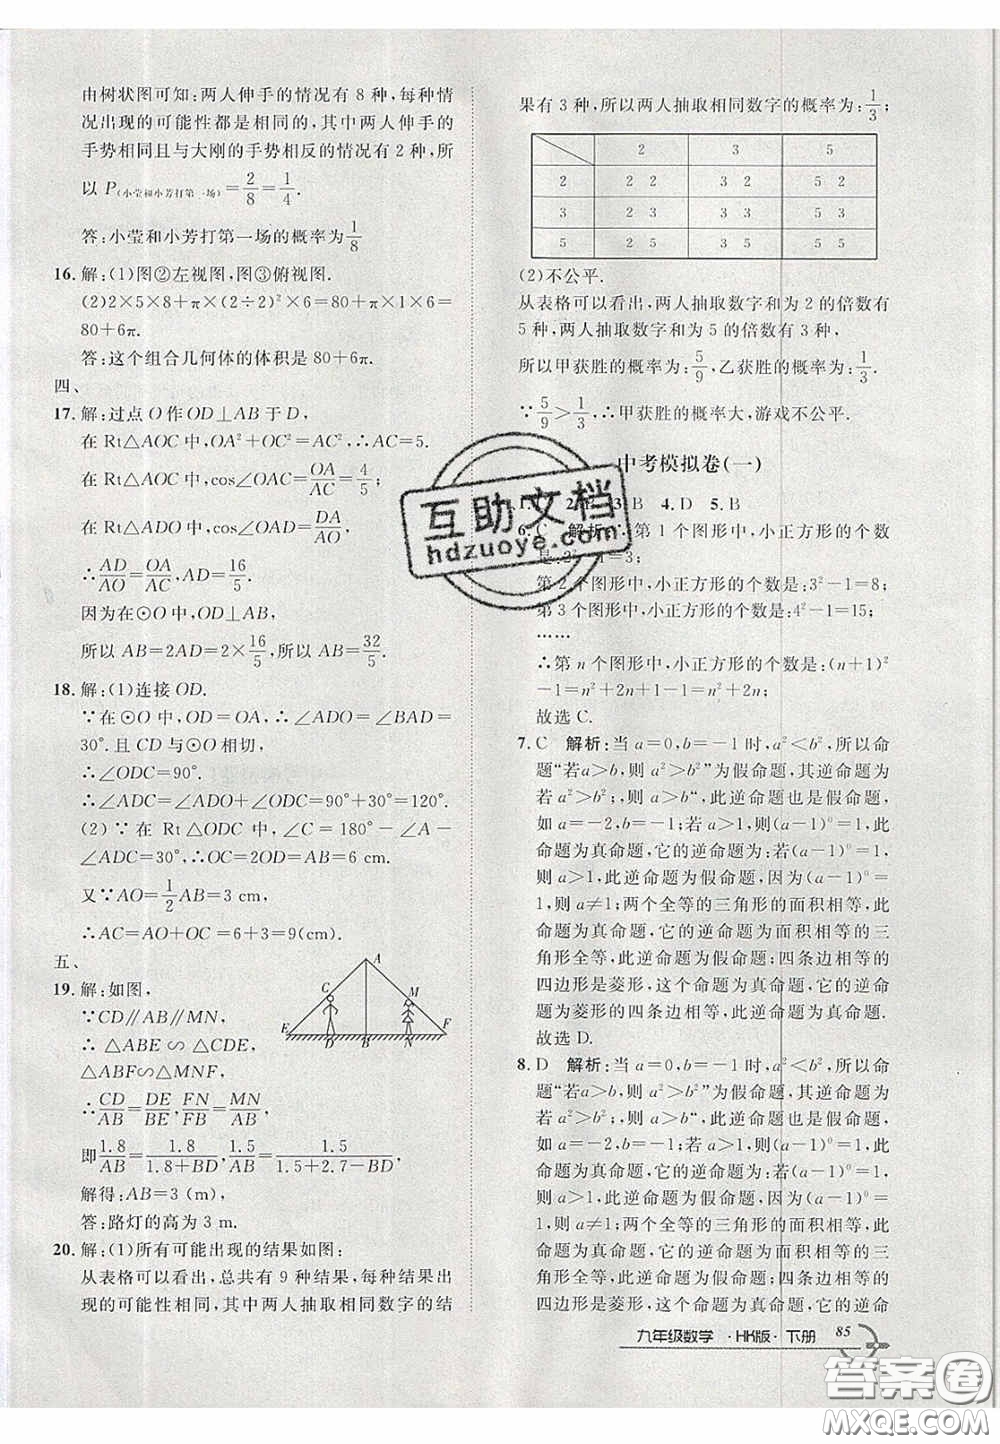 由树状图可知:两人伸手的情况有 8 种,每种情
况出现的可能性都是相同的,其中两人伸手的
手势相同且与大刚的手势相反的情况有 2 种,所
以 P(小莹和小芳打第一场)=2/8=1/4.
答:小莹和小芳打第一场的概率为1/8
16. 解:(1)图②左视图,图③俯视图.
(2)2×5×8+π×(2÷2)²×6=80+π×1×6=
80+6π.
答:这个组合几何体的体积是 80+6π.
四、
17. 解:过点 O 作 OD⊥AB 于 D,
在 Rt△AOC 中,OA²+OC²=AC²,∴AC=5.
在 Rt△AOC 中,cos∠OAC=OA/AC=4/5,
在 Rt△ADO 中,cos∠OAD=DA/AO,
∴AD/AO=OA/AC,AD=16/5,
因为在⊙O 中,OD⊥AB,
所以 AB=2AD=2×16/5,所以 AB=32/5.
18. 解:(1)连接 OD.
∵在⊙O 中,OD=OA,∴∠ADO=∠BAD=
30°.且 CD 与⊙O 相切,
∴∠ODC=90°.
∴∠ADC=∠ADO+∠ODC=90°+30°=120°.
(2)∵在 Rt△ODC 中,∠C=180°-∠A-
∠ADC=30°,∴OC=2OD=AB=6 cm.
又∵AO=1/2AB=3 cm,
∴AC=AO+OC=6+3=9(cm).
五、
19. 解:如图,
∵CD∥AB∥MN,
∴△ABE∽△CDE,
△ABF∽△MNF,
∴CD/AB=DE/BE,FN/FB=MN/AB,
即1.8/AB=1.8/1.8+BD,1.5/AB=1.5/1.5+2.7-BD,
解得:AB=3 (m),
答:路灯的高为 3 m.
A
C
M
E
D
B
N
F
20. 解:(1)所有可能出现的结果如图:
从表格可以看出,总共有 9 种结果,每种结果出
现的可能性相同,其中两人抽取相同数字的结
果有 3 种,所以两人抽取相同数字的概率为:1/3;
2 3 5
2 2 2 3 2 5 2
3 2 3 3 3 5 3
5 2 5 3 5 5 5
(2)不公平.
从表格可以看出,两人抽取数字和为 2 的倍数有
5 种,两人抽取数字和为 5 的倍数有 3 种,
所以甲获胜的概率为:5/9,乙获胜的概率为:1/3.
∵5/9>1/3,∴甲获胜的概率大,游戏不公平.
中考模拟卷(一)
1. 2. 3. B 4. D 5. B
6. C 解析:∵第 1 个图形中,小正方形的个数
是:2²-1=3;
第 2 个图形中,小正方形的个数是:3²-1=8;
第 3 个图形中,小正方形的个数是:4²-1=15;
……
∴第 n 个图形中,小正方形的个数是:(n+1)²
-1=n²+2n+1-1=n²+2n;
故选 C.
7. C 解析:当 a=0,b=-1 时,a²<b²,所以命
题“若a>b,则 a²>b²“为假命题,其逆命题为
若 a²>b²;,则a>b“,此逆命题也是假命题,
如 a=-2,b=-1;若 a>1,则(a-1)⁰=1,此
命题为真命题,它的逆命题为:若(a-1)⁰=1,
则 a>1,此逆命题为假命题,应为(a-1)⁰=
1,则 a≠1;两个全等的三角形的面积相等,此
命题为真命题,它的逆命题为面积相等的三
角形全等,此逆命题为假命题;四条边相等的
四边形是菱形,这个命题为真命题,它的逆命
题为菱形的四条边相等,此逆命题为真命题.
故选 D.
8. D 解析:当 a=0,b=-1 时,a²<b²,所以命
题“若a>b,则 a²>b²“为假命题,其逆命题为
若 a²>b²;,则a>b“,此逆命题也是假命题,
如 a=-2,b=-1;若 a>1,则(a-1)⁰=1,此
命题为真命题,它的逆命题为:若(a-1)⁰=1,
则 a>1,此逆命题为假命题,应为(a-1)⁰=
1,则 a≠1;两个全等的三角形的面积相等,此
命题为真命题,它的逆命题为面积相等的三
角形全等,此逆命题为假命题;四条边相等的
四边形是菱形,这个命题为真命题,它的逆命
九年级数学 · HK版 · 下册 85
互助文档
hdzuoye.com
答案圈
MXQE.COM